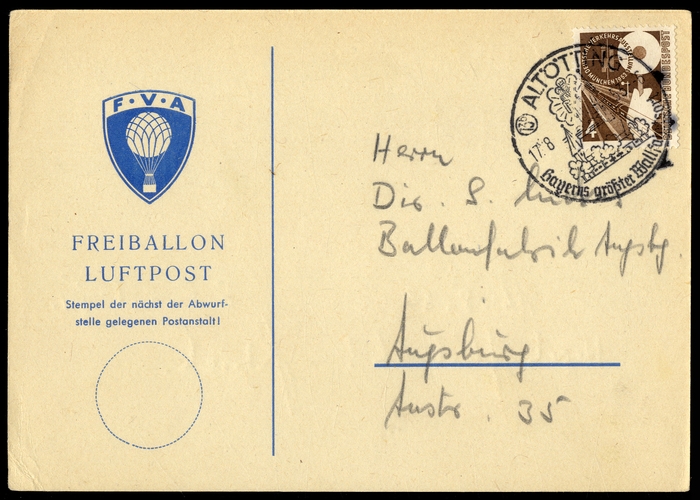 F·V·A
FREIBALLON
LUFTPOST
Stempel der nächst der Abwurf-
stelle gelegenen Postanstalt!
ALTÖTTING
17.8
Bayerns größter Wallfahrtsort
DEUTSCHE VERKEHRSAUSSTELLUNG MÜNCHEN 1953
4
DEUTSCHE BUNDESPOST
Herrn
Dir. S.
Ballonfabrik Augsbg.
Augsburg
Austr. 35